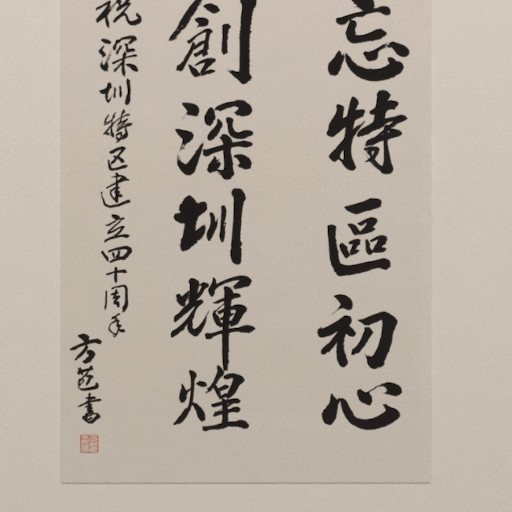 忘特區初心
創深圳輝煌
祝深圳特区建立四十周年
方苞書